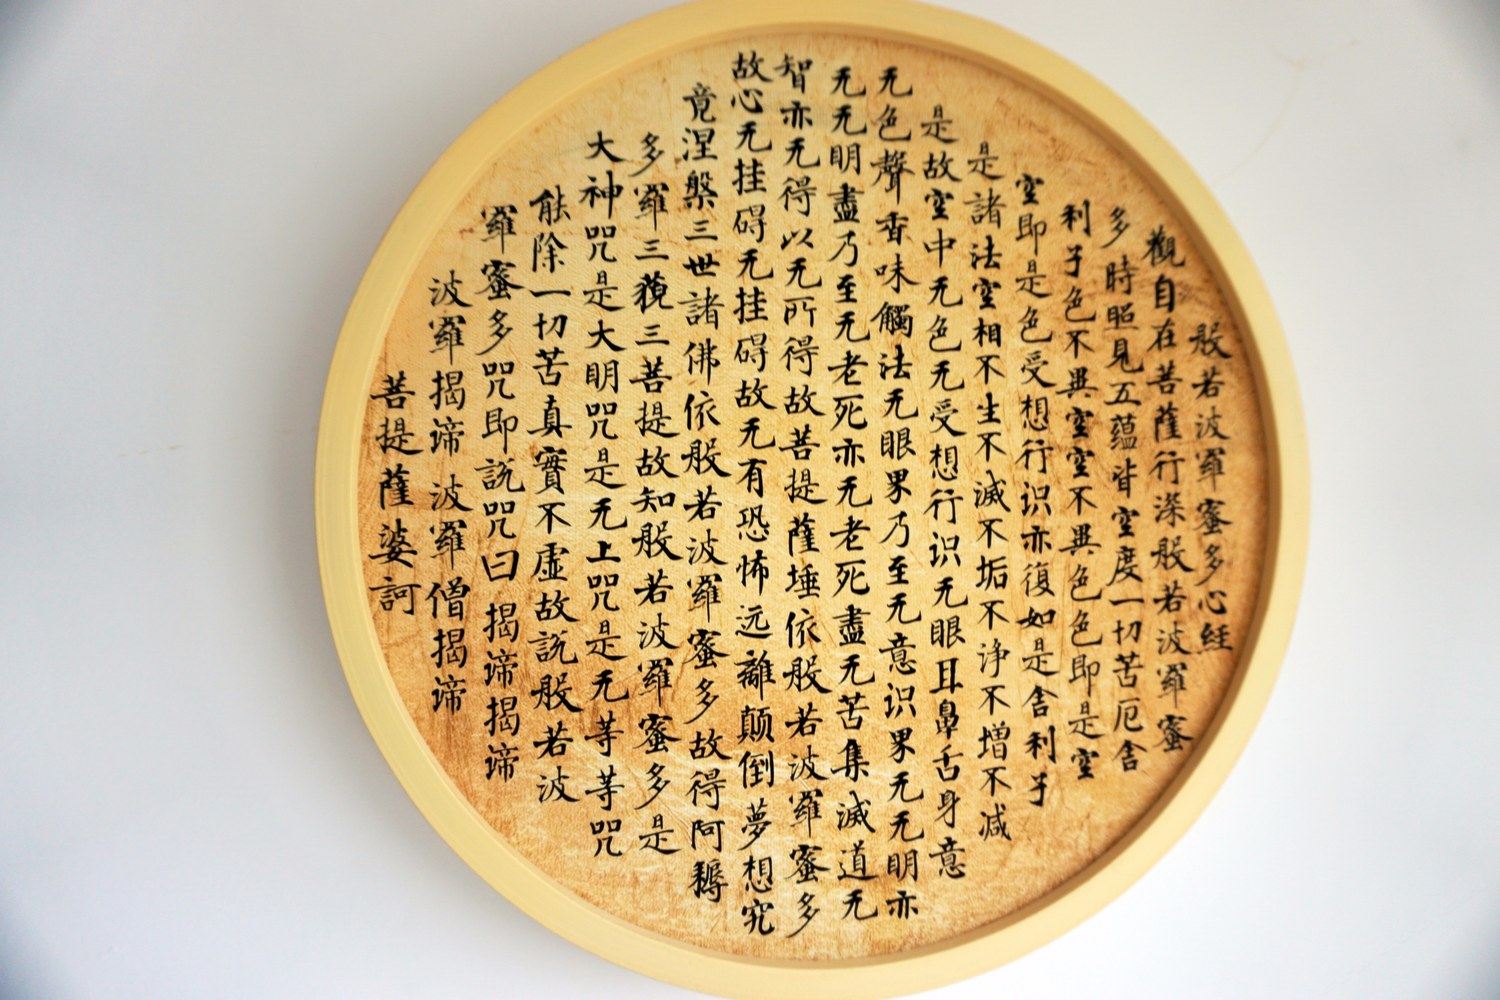 般若波羅蜜多心経
觀自在菩薩行深般若波羅蜜
多時照見五蕴皆空度一切苦厄舍
利子色不異空空不異色色即是空
空即是色受想行识亦復如是舍利子
是諸法空相不生不滅不垢不净不增不减
是故空中无色无受想行识无眼耳鼻舌身意
无色聲香味觸法无眼界乃至无意识界无无明亦
无无明盡乃至无老死亦无老死盡无苦集滅道无
智亦无得以无所得故菩提薩埵依般若波羅蜜多
故心无挂碍无挂碍故无有恐怖远離颠倒夢想究
竟涅槃三世諸佛依般若波羅蜜多故得阿耨
多羅三藐三菩提故知般若波羅蜜多是
大神咒是大明咒是无上咒是无等等咒
能除一切苦真實不虛故説般若波
羅蜜多咒即説咒曰 揭谛揭谛
波羅揭谛 波羅僧揭谛
菩提薩婆訶